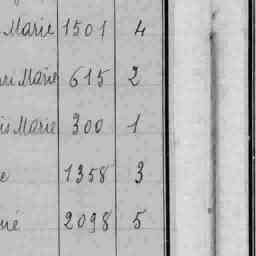 Marie 1501 4
Marie 615 2
Marie 300 1
1358 3
2098 5